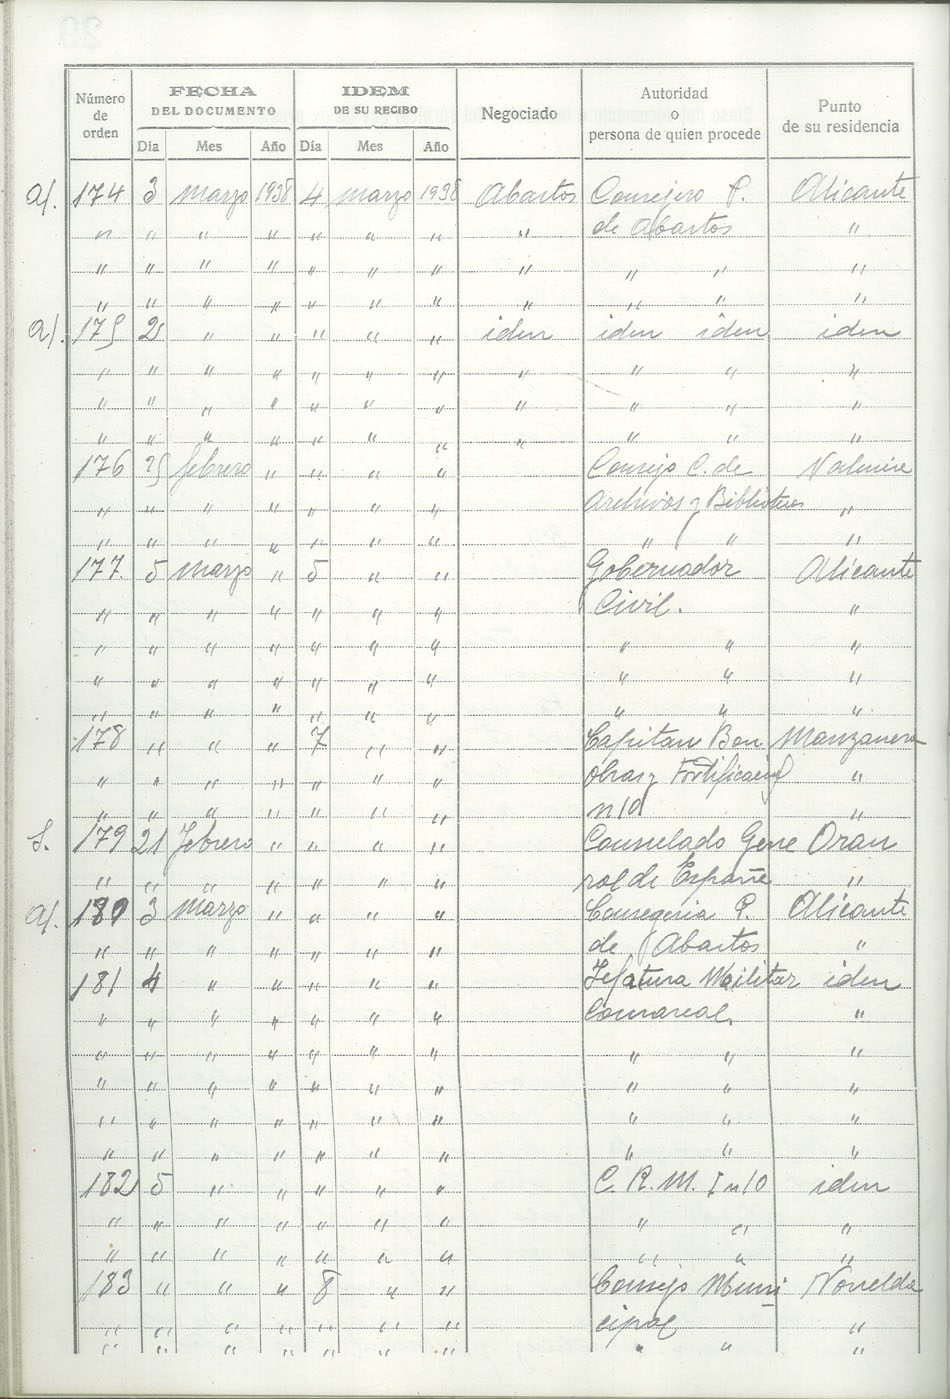 Número de orden | FECHA DEL DOCUMENTO | IDEM DE SU RECIBO | Negociado | Autoridad o persona de quien procede | Punto de su residencia
Día | Mes | Año | Día | Mes | Año
a/. 174 3 Marzo 1938 4 Marzo 1938 Abastos Consejero P. Alicante
" " " " " " " " de Abastos "
" " " " " " " " " " "
" " " " " " " " " " "
a/. 175 2 " " " " " iden iden iden iden
" " " " " " " " " " "
" " " " " " " " " " "
" " " " " " " " " " "
176 25 febrero " " " " Consejo C. de
" " " " " " " Archivos y Bibliotecas "
" " " " " " " " " "
177 5 Marzo " 5 " " Gobernador Alicante
" " " " " " " Civil. "
" " " " " " " " " "
" " " " " " " " " "
" " " " " " " " " "
178 " " " 7 " " Capitan Bon Manzanera
" " " " " " " Obras y Fortificacion "
" " " " " " " n 10 "
S. 179 21 Febrero " " " " Consulado Gene Oran
" " " " " " " ral de España "
a/. 180 3 Marzo " " " " Consegeria P. Alicante
" " " " " " " de Abastos "
181 4 " " " " " Jefatura Militar iden
" " " " " " " Comarcal. "
" " " " " " " " " "
" " " " " " " " " "
" " " " " " " " " "
" " " " " " " " " "
182 5 " " " " " C. R. M. I n 10 iden
" " " " " " " " " "
" " " " " " " " " "
183 " " " 8 " " Consejo Muni Novelda
" " " " " " " cipal "
" " " " " " " " " "